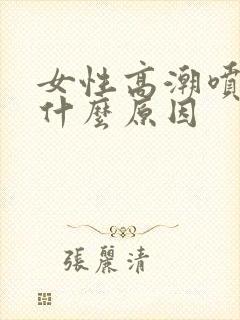 女性高潮噴
什麼原因
張麗清